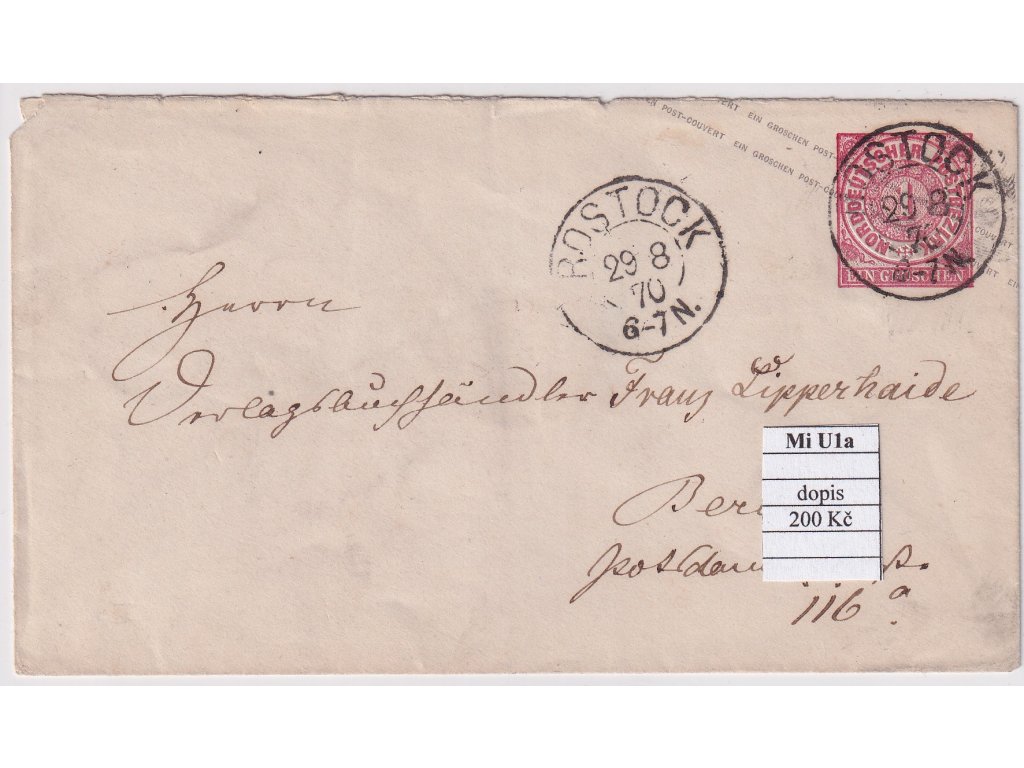 EN POST-COUVERT EIN GROSCHEN POST-
VERT EIN GROSCHEN POST-COU
COUVERT
NORDDEUTSCHER POSTBEZIRK
1
EIN GROSCHEN
ROSTOCK
29 8
70
6-7 N.
ROSTOCK
29 8
70
6-7 N.
Herrn
Verlagsbuchhändler Franz Lipperhaide
Ber
Potsdam
116 a
Mi U1a
dopis
200 Kč